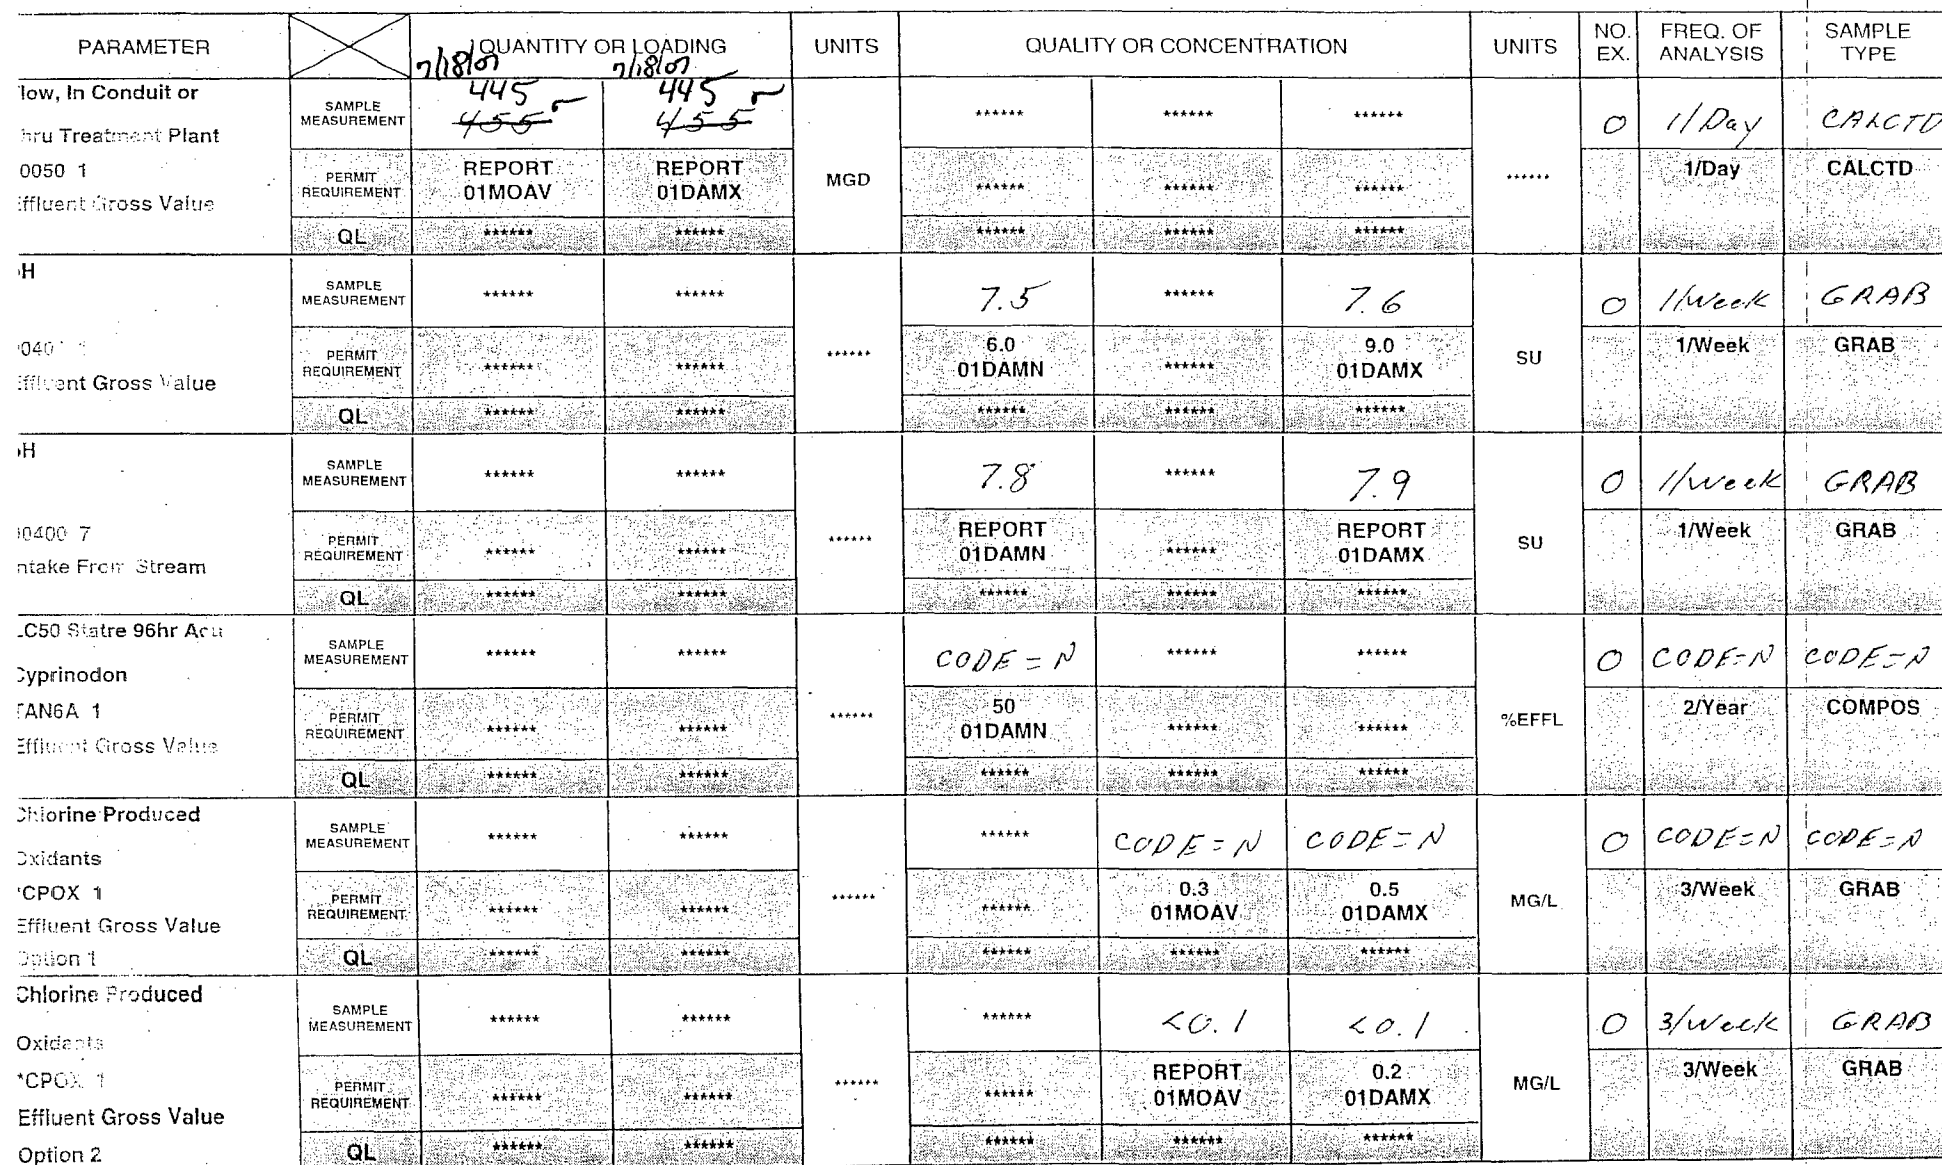 PARAMETER QUANTITY OR LOADING UNITS QUALITY OR CONCENTRATION UNITS NO. EX. FREQ. OF ANALYSIS SAMPLE TYPE
7/18/07 7/18/07
low, In Conduit or
hru Treatment Plant
0050 1
Effluent Gross Value
SAMPLE MEASUREMENT 445 445 ****** ****** ****** 0 1/Day CALCTD
455 455
PERMIT REQUIREMENT REPORT 01MOAV REPORT 01DAMX MGD ****** ****** ****** ****** 1/Day CALCTD
QL ****** ****** ****** ****** ******
H
040 1
Effluent Gross Value
SAMPLE MEASUREMENT ****** ****** 7.5 ****** 7.6 0 1/Week GRAB
PERMIT REQUIREMENT ****** ****** ****** 6.0 01DAMN ****** 9.0 01DAMX SU 1/Week GRAB
QL ****** ****** ****** ****** ******
H
00400 7
ntake From Stream
SAMPLE MEASUREMENT ****** ****** 7.8 ****** 7.9 0 1/week GRAB
PERMIT REQUIREMENT ****** ****** ****** REPORT 01DAMN ****** REPORT 01DAMX SU 1/Week GRAB
QL ****** ****** ****** ****** ******
LC50 Statre 96hr Acu
Cyprinodon
TAN6A 1
Effluent Gross Value
SAMPLE MEASUREMENT ****** ****** CODE=N ****** ****** 0 CODE=N CODE=N
PERMIT REQUIREMENT ****** ****** ****** 50 01DAMN ****** ****** %EFFL 2/Year COMPOS
QL ****** ****** ****** ****** ******
Chlorine Produced
Oxidants
*CPOX 1
Effluent Gross Value
Option 1
SAMPLE MEASUREMENT ****** ****** ****** CODE=N CODE=N 0 CODE=N CODE=N
PERMIT REQUIREMENT ****** ****** ****** ****** 0.3 01MOAV 0.5 01DAMX MG/L 3/Week GRAB
QL ****** ****** ****** ****** ******
Chlorine Produced
Oxidants
*CPOX 1
Effluent Gross Value
Option 2
SAMPLE MEASUREMENT ****** ****** ****** <0.1 <0.1 0 3/week GRAB
PERMIT REQUIREMENT ****** ****** ****** ****** REPORT 01MOAV 0.2 01DAMX MG/L 3/Week GRAB
QL ****** ****** ****** ****** ******